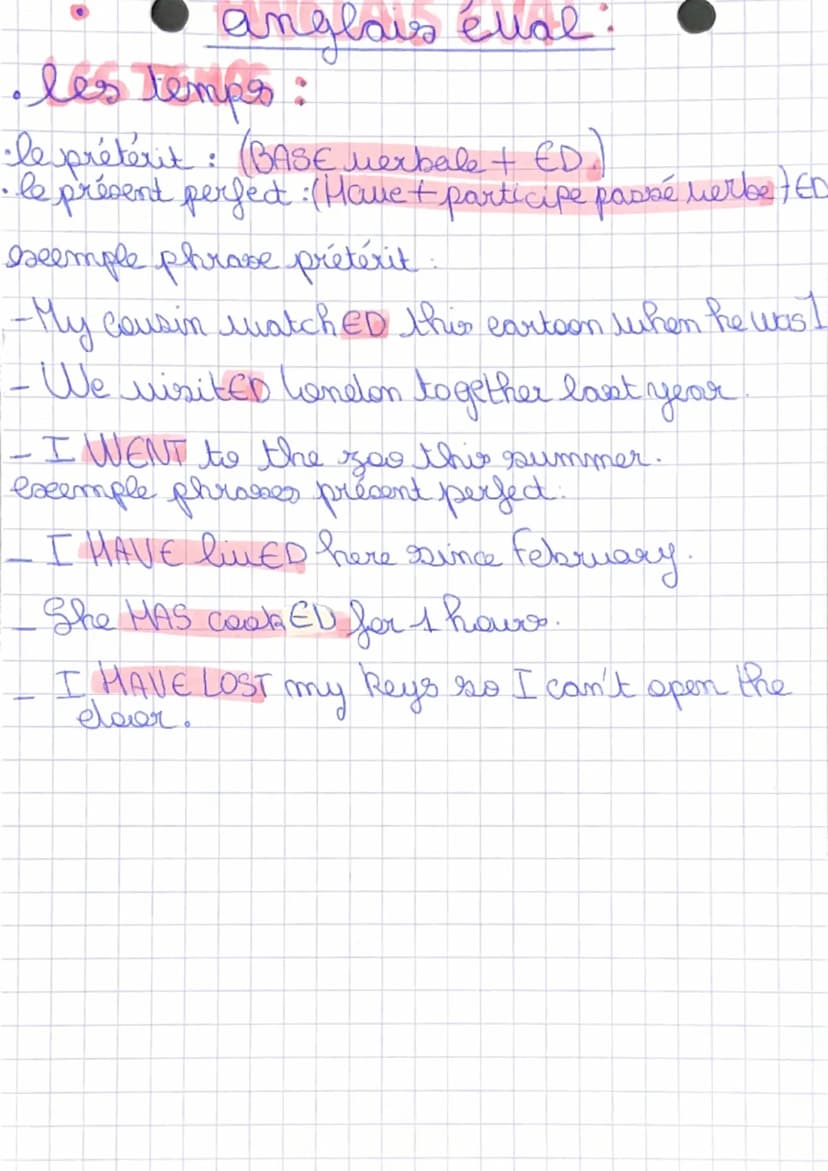 anglais éval :
. les temps :
. le prétérit : (BASE verbale + ED.)
. le présent perfect : (Have + participe passé verbe) ED
exemple phrase prétérit :
- My cousin watchED this cartoon when he was 1
- We visitED London together last year.
- I WENT to the zoo this summer.
exemple phrases présent perfect :
- I HAVE livED here since february.
- She HAS cookED for 1 hours.
- I HAVE LOST my keys so I can't open the
door.